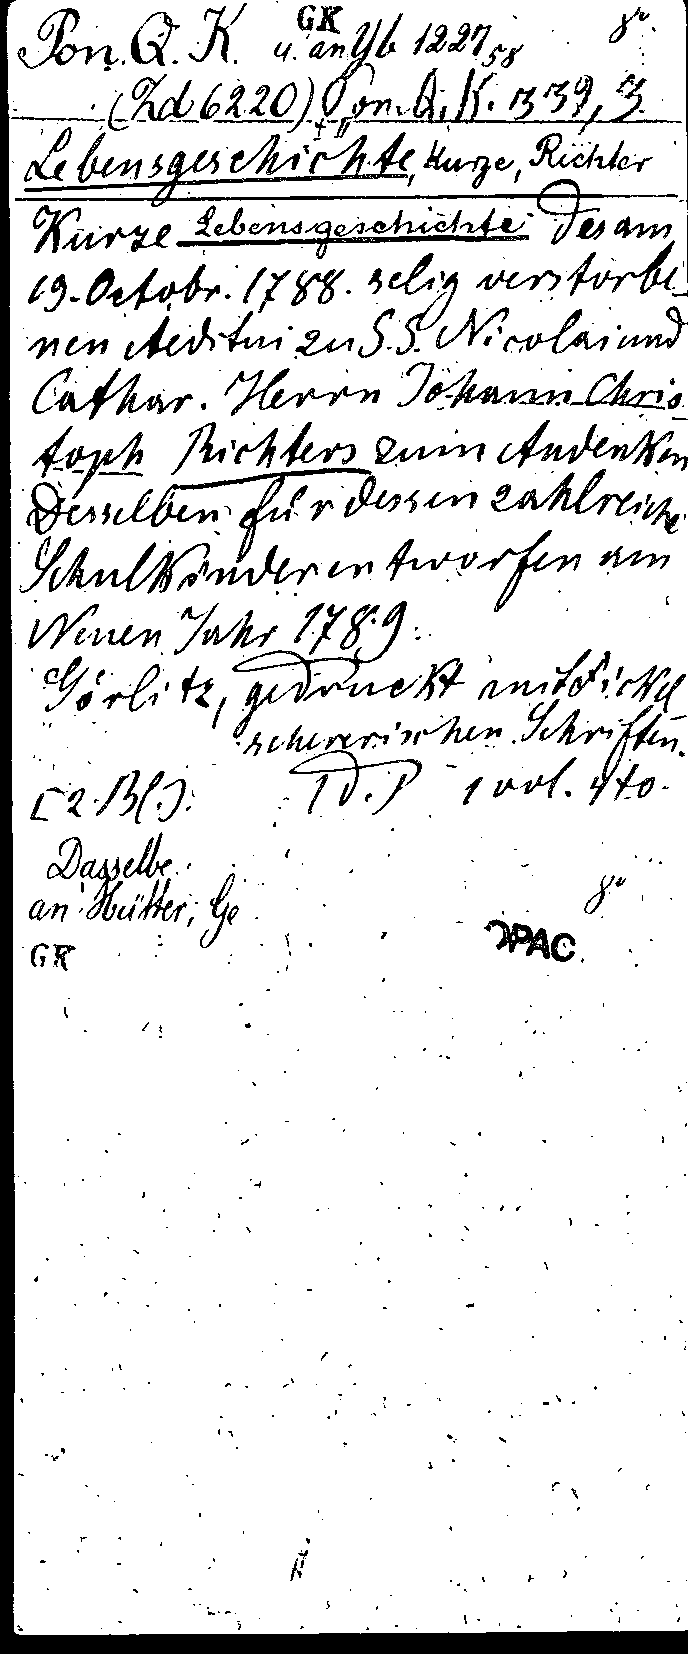 GK
Pon. Q. K. u. an Yb 1227 58
(Zd 6220) Pon. Q. K. 339, 3.
Lebensgeschichte, Kurze, Richter
Kurze Lebensgeschichte des am
19. Octobr. 1788. selig verstorbe
nen Aeditui zu S. S. Nicolai und
Cathar. Herrn Johann Chris
toph Richters zum Andenken
Desselben für dessen zahlreiche
Schulkinder entworfen am
Neuen Jahr 1789.
Görlitz, gedruckt mit Fickel
schererischen Schriften.
[2 Bl.]. 1 vol. 4to.
Dasselbe
an Hütter, Ge
GK OPAC